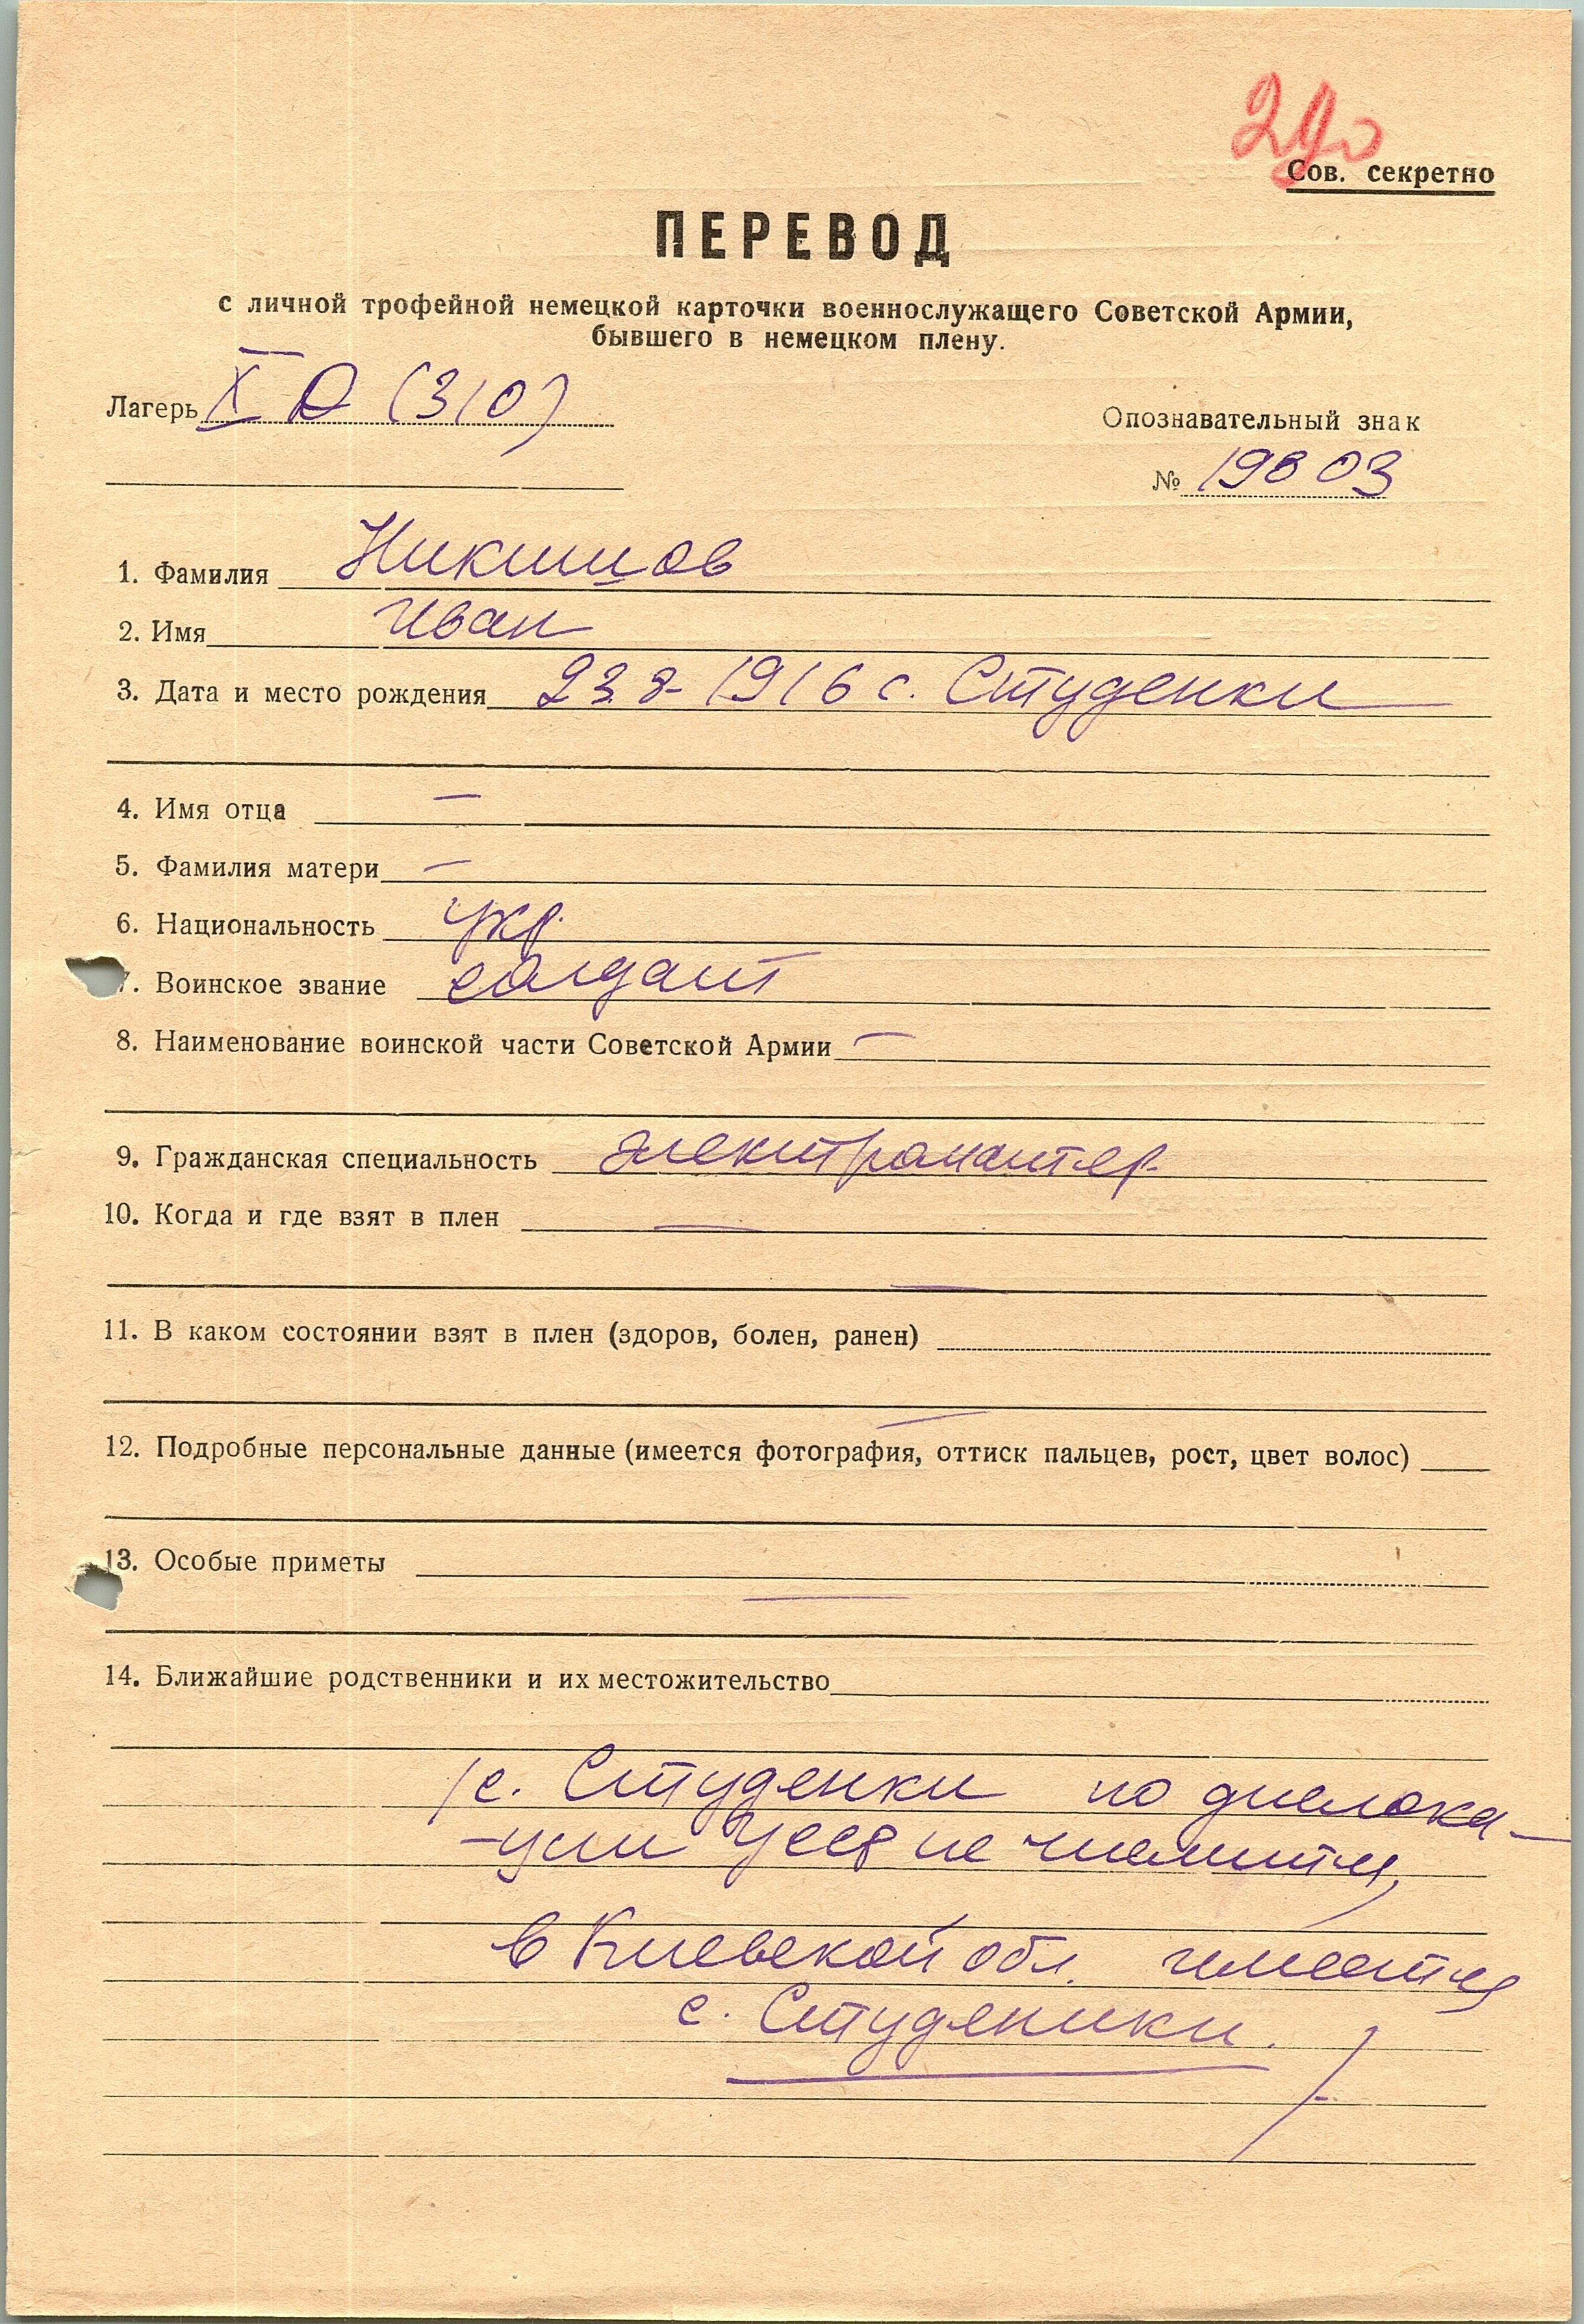 Сов. секретно
ПЕРЕВОД
с личной трофейной немецкой карточки военнослужащего Советской Армии,
бывшего в немецком плену.
Лагерь X D (310)
Опознавательный знак
№ 19803
1. Фамилия Никишов
2. Имя Иван
3. Дата и место рождения 23.8-1916 с. Студенки
4. Имя отца —
5. Фамилия матери —
6. Национальность укр.
7. Воинское звание солдат
8. Наименование воинской части Советской Армии —
9. Гражданская специальность электромонтер
10. Когда и где взят в плен —
—
11. В каком состоянии взят в плен (здоров, болен, ранен)
—
12. Подробные персональные данные (имеется фотография, оттиск пальцев, рост, цвет волос)
13. Особые приметы
—
14. Ближайшие родственники и их местожительство
/с. Студенки по дислока-
-ции УССР не числится,
в Киевской обл. имеется
с. Студеники. /